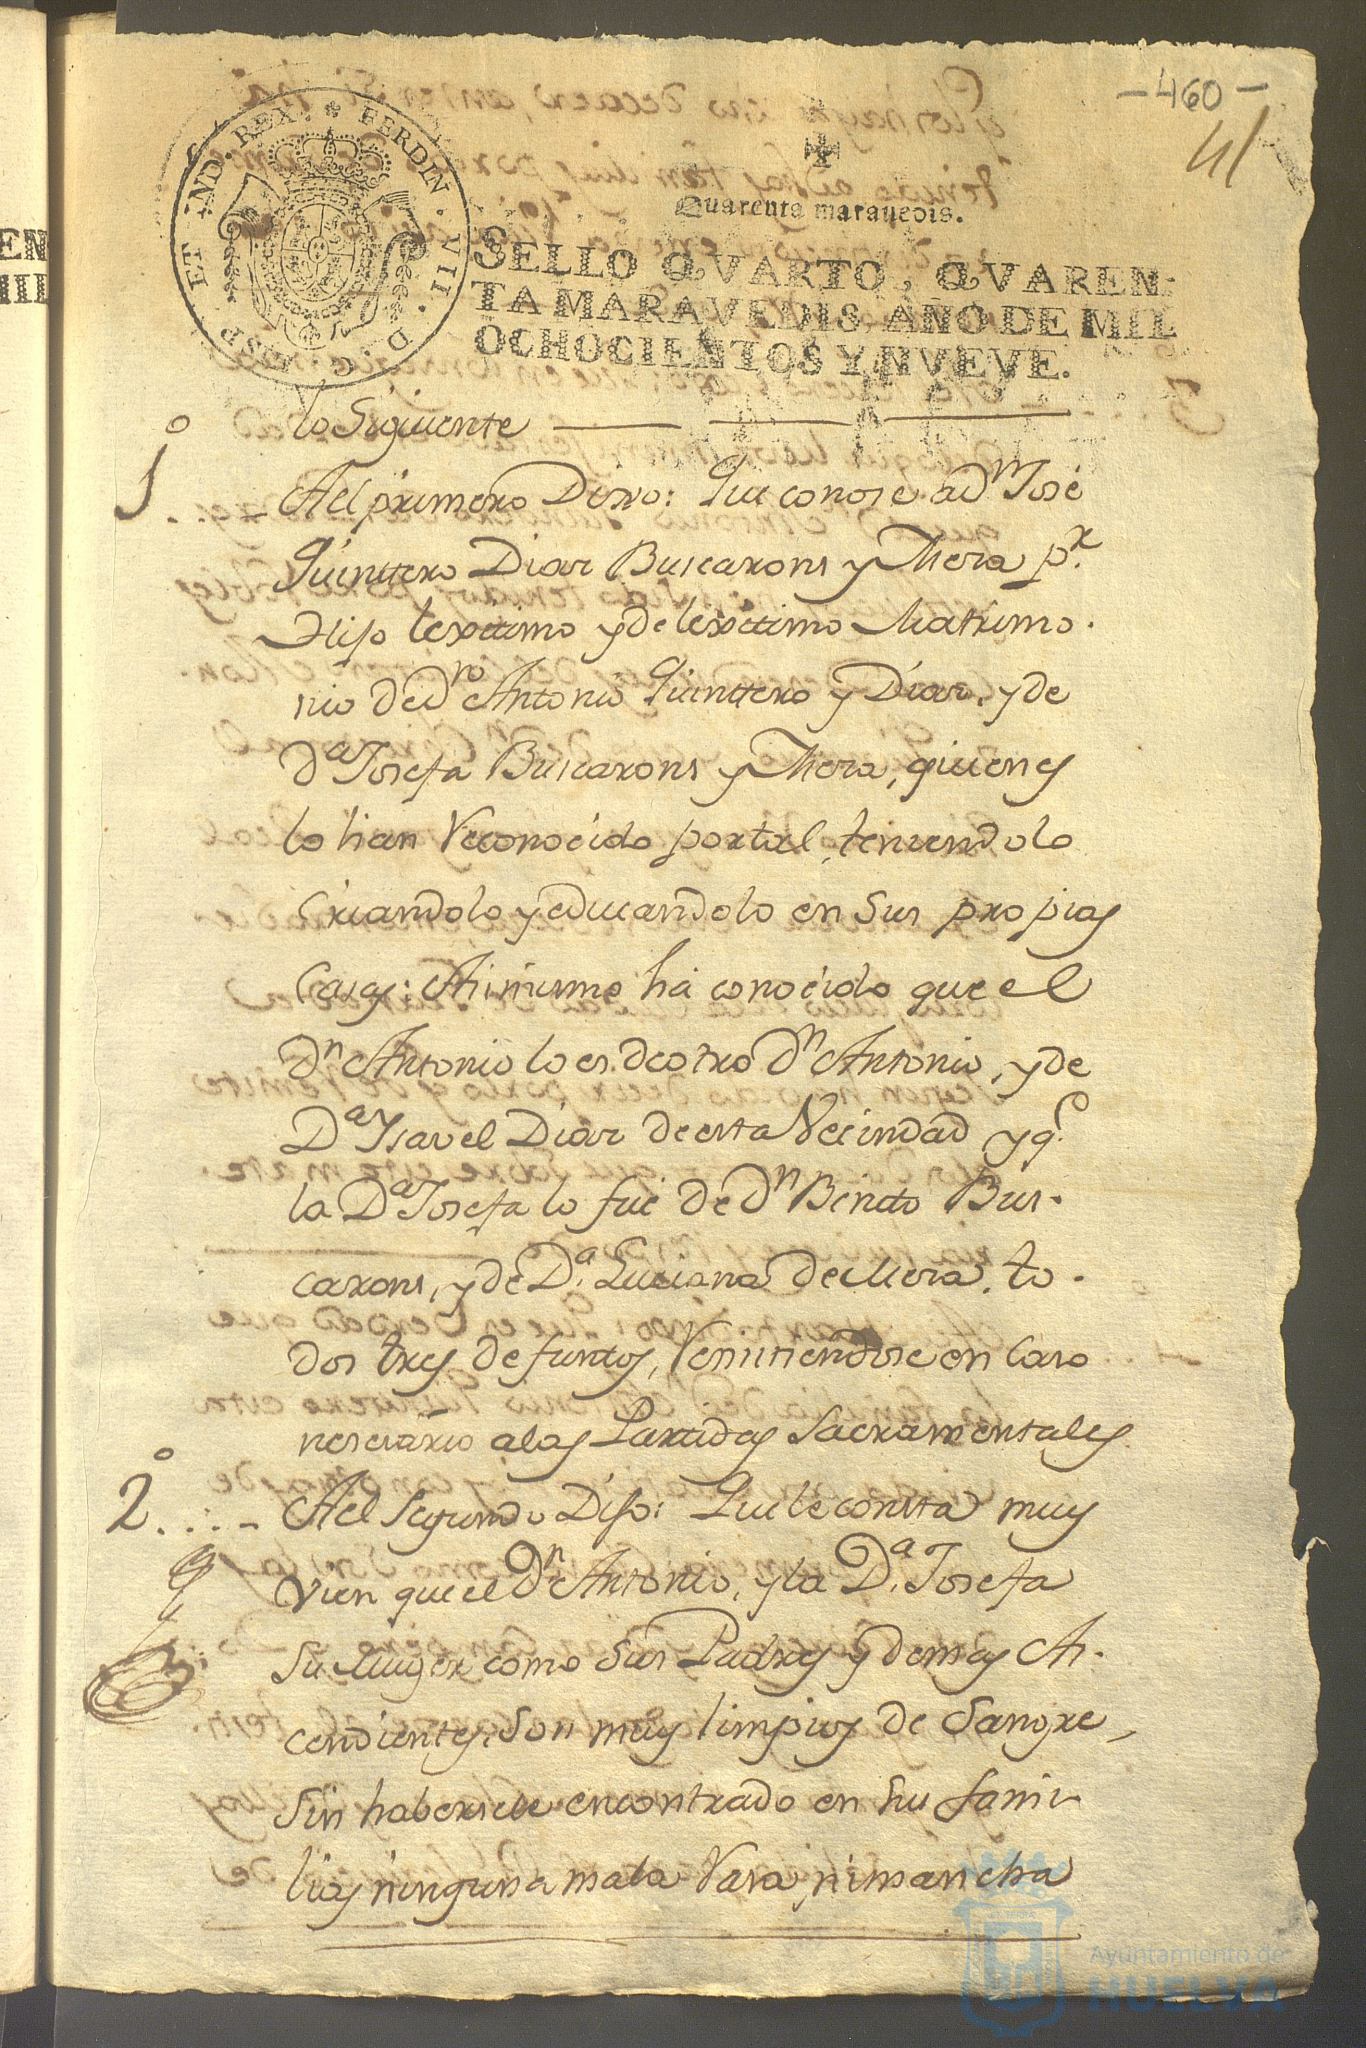 -460-
41
FERDIN. VII. D. G. HISP. ET. IND. REX.
Quarenta maravedis.
SELLO QVARTO, QVAREN-
TA MARAVEDIS, AÑO DE MIL
OCHOCIENTOS Y NVEVE.
lo Siguiente
1º Al primero Dixo: Que conose a Dn José
Quinttero Diaz Buscarons y Mera pr
Hijo lexitimo y de lexitimo Matrimo-
nio de Dn Antonio Quinttero y Diaz, y de
Da Josefa Buscarons y Mera, quienes
lo han Reconocido por tal, teniendolo
Criandolo y educandolo en Sus propias
Casas: Asimismo ha conocido que el
Dn Antonio lo es de otro Dn Antonio, y de
Da Ysavel Diaz de esta Vecindad y qe
la Da Josefa lo fue de Dn Benito Bus-
carons, y de Da Luciana de Mera, to-
dos tres defuntos, Remitiendose en Caso
nesesario a las Partidas Sacramentales
2º Al Segundo Dijo: Que le consta muy
Vien que el Dn Antonio, y la Da Josefa
Su Muger como Sus Padres y demas As-
cendientes, Son muy limpios de Sangre,
Sin haversele encontrado en Su fami-
lias ninguna mala Raza, ni mancha
Ayuntamiento de
HUELVA